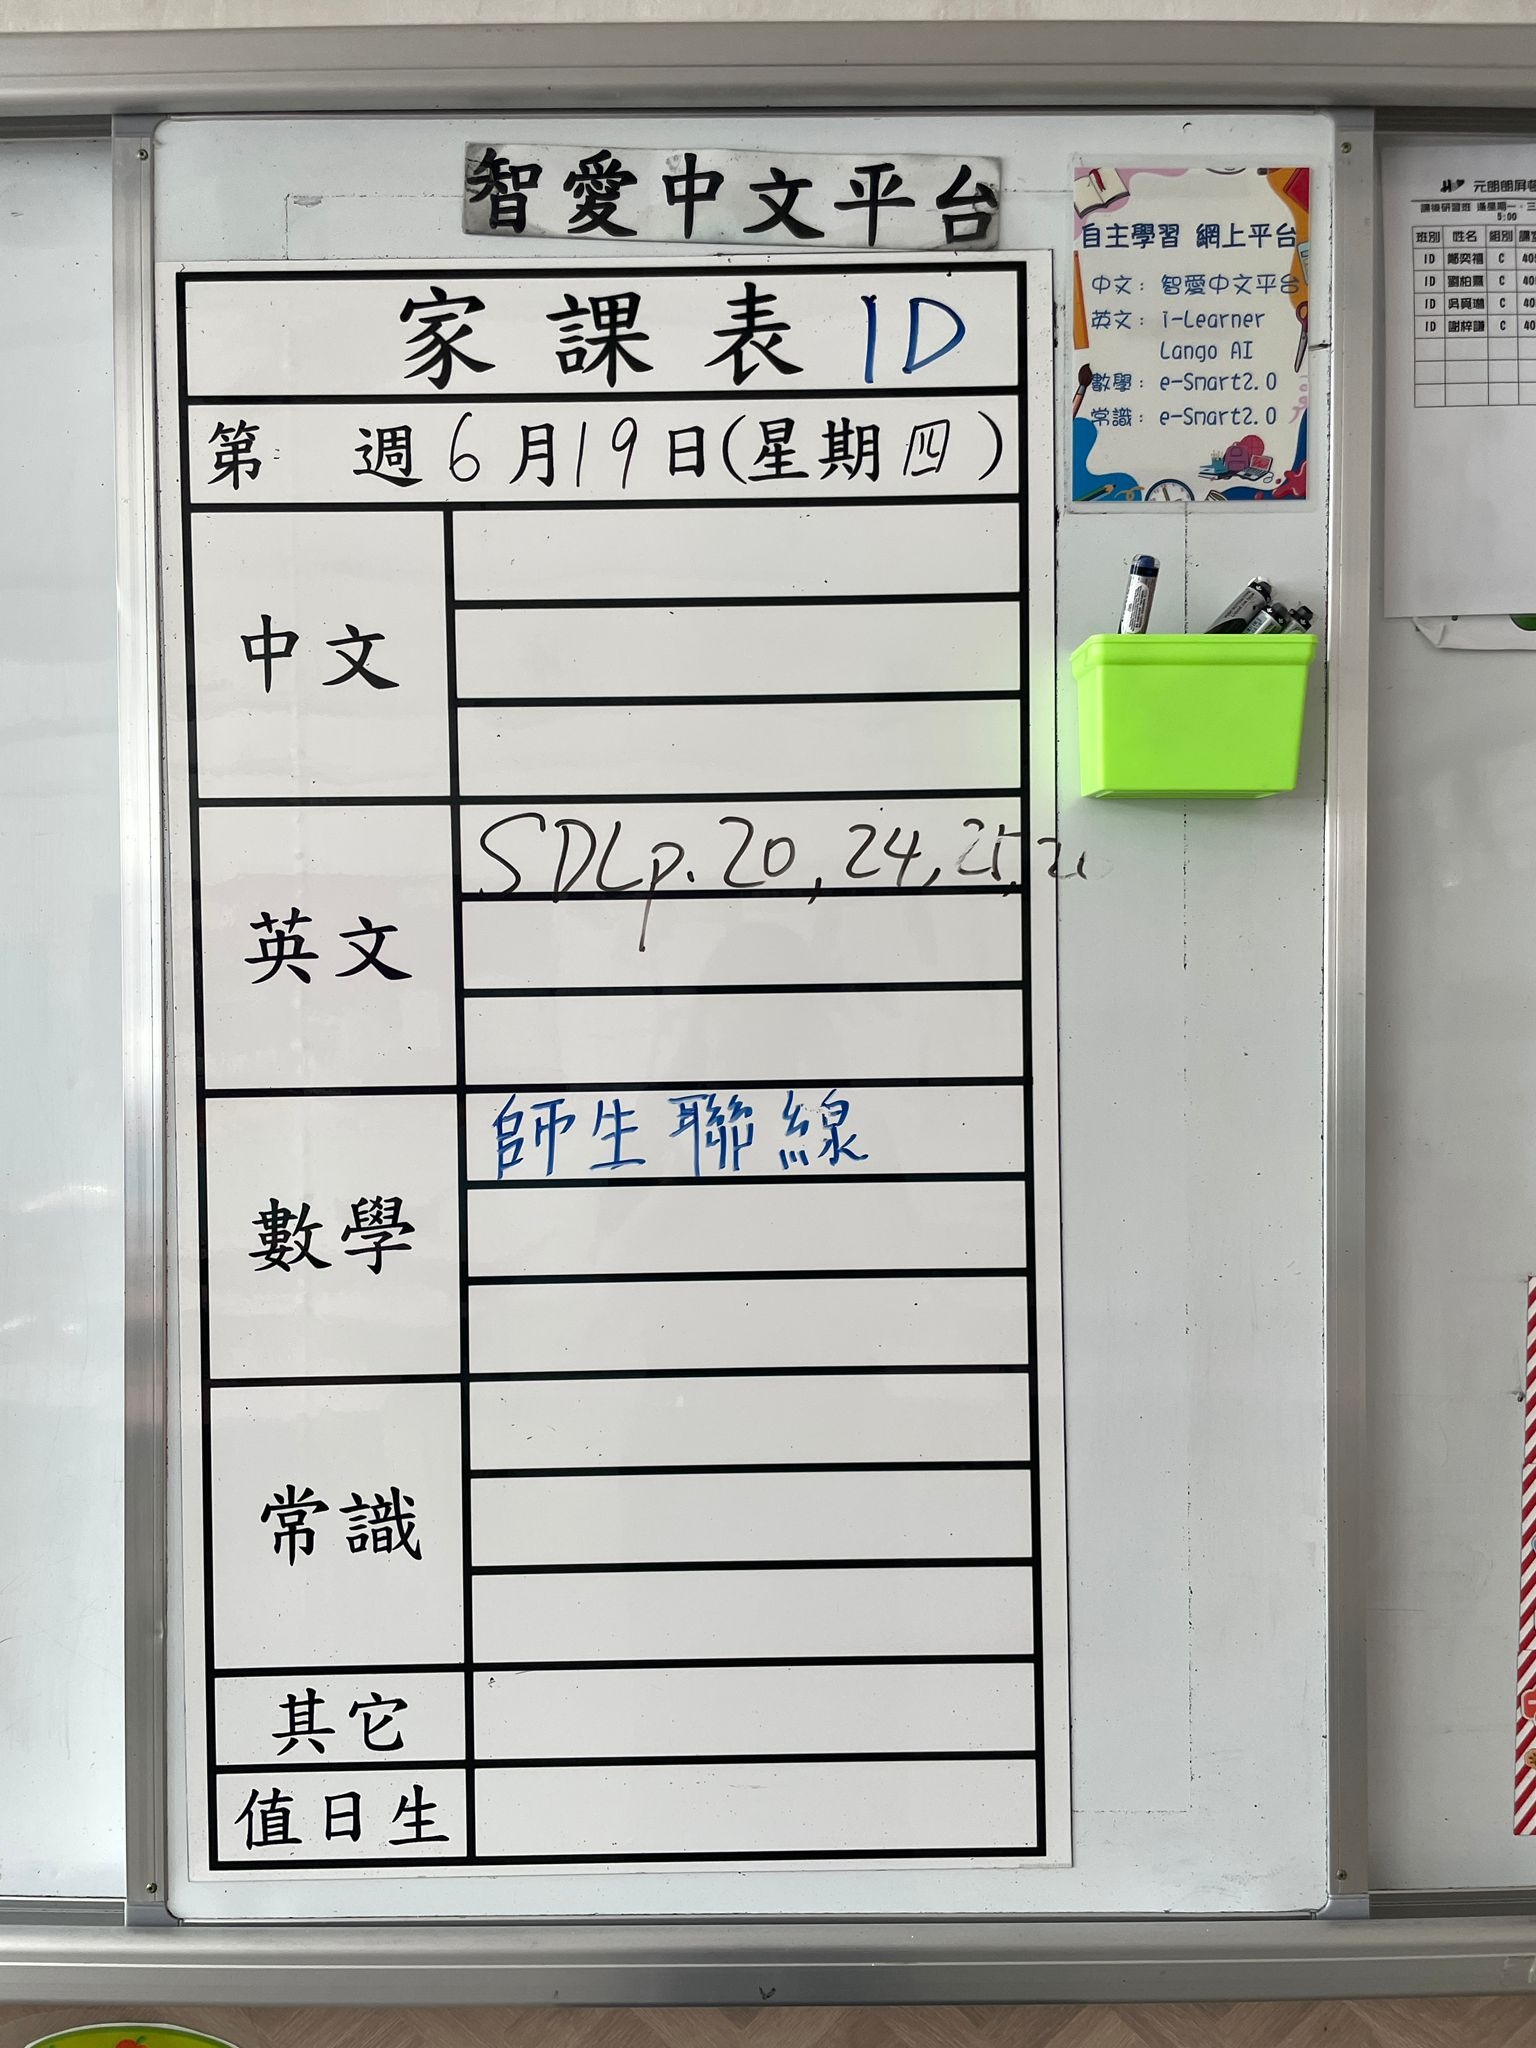 智愛中文平台
家課表 1D
第 週 6月19日(星期四)
中文
英文
SDL p. 20, 24, 25,
數學
師生聯線
常識
其它
值日生
自主學習 網上平台
中文: 智愛中文平台
英文: i-Learner
Lango AI
數學: e-Smart2.0
常識: e-Smart2.0
元朗朗屏
5:00
班別 姓名 組別
1D C
1D C
1D C
1D 謝梓謙 C